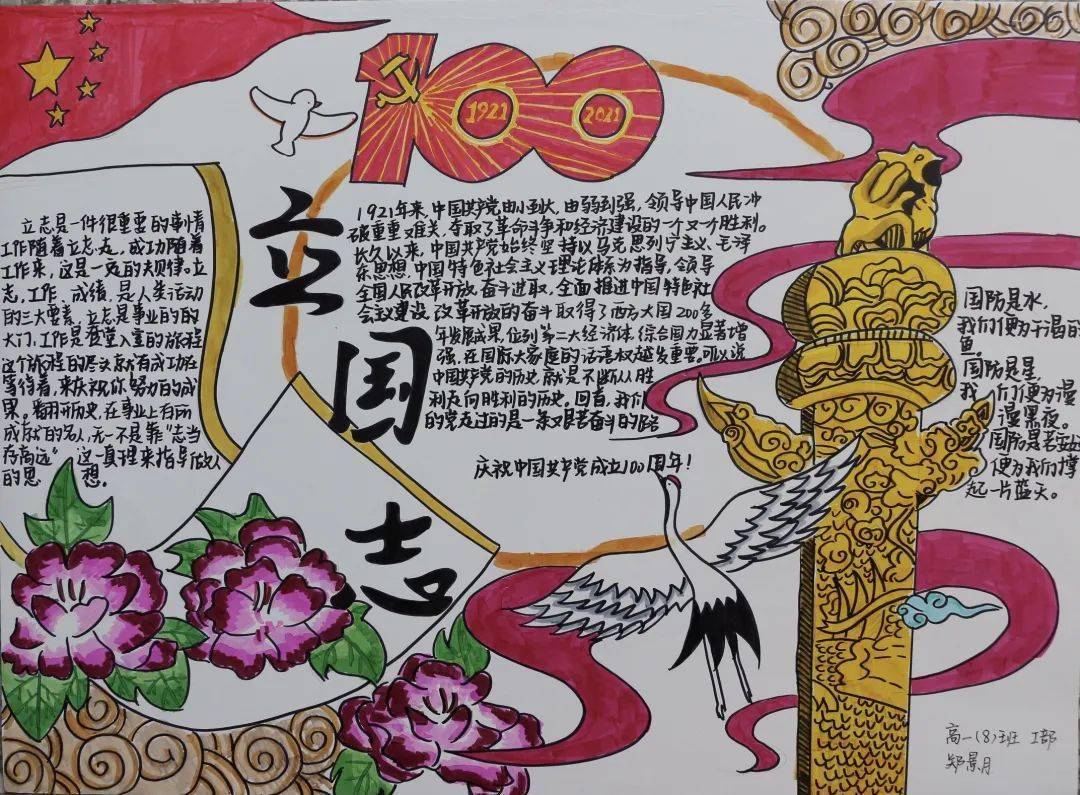 1921
2021
立国志
立志是一件很重要的事情
工作随着立志走，成功随着
工作来，这是一定的大规律。立
志，工作、成绩，是人类活动
的三大要素，立志是事业的的
大门，工作是登堂入室的旅程
这个旅程的尽头就有成功在
等待着，来庆祝你努力的成
果。翻开历史，在事业上有所
成就的名人，无一不是靠“志当
存高远”这一真理来指导做人
的思想。
1921年来，中国共产党由小到大，由弱到强，领导中国人民冲
破重重难关，夺取了革命斗争和经济建设的一个又一个胜利。
长久以来，中国共产党始终坚持以马克思列宁主义、毛泽
东思想、中国特色社会主义理论体系为指导，领导
全国人民改革开放，奋斗进取，全面推进中国特色社
会主义建设，改革开放的奋斗取得了西方大国200多
年发展成果，位列第二大经济体，综合国力显著增
强，在国际大家庭的话语权越发重要。可以说
中国共产党的历史就是不断从胜
利走向胜利的历史。回首，我们
的党走过的是一条艰苦奋斗的路
庆祝中国共产党成立100周年！
国防是水，
我们便为干渴的
鱼。
国防是星，
我们便为漫
漫黑夜。
国防是
便为我们撑
起一片蓝天。
高一(8)班 I部
郑景月